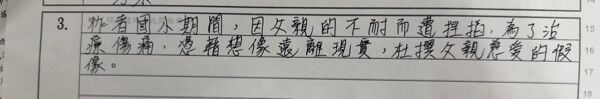 3. 作者國小期間，因父親的不耐而遭捏掐，為了治
療傷痛，憑藉想像遠離現實，杜撰父親慈愛的假
像。
15
16
17
18